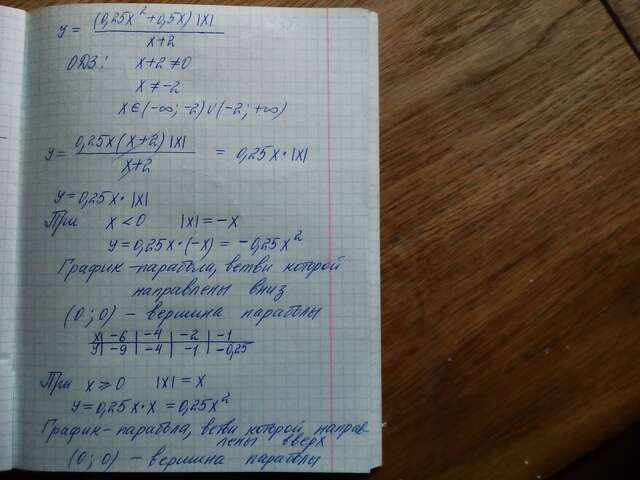 y = (0,25x² + 0,5x) |x| / x+2
ОДЗ: x+2 ≠ 0
x ≠ -2
x ∈ (-∞; -2) ∪ (-2; +∞)
y = 0,25x(x+2) |x| / x+2 = 0,25x · |x|
y = 0,25x · |x|
При x < 0 |x| = -x
y = 0,25x · (-x) = -0,25x²
График - парабола, ветви которой
направлены вниз
(0; 0) - вершина параболы
x | -6 | -4 | -2 | -1
y | -9 | -4 | -1 | -0,25
При x ⩾ 0 |x| = x
y = 0,25x · x = 0,25x²
График - парабола, ветви которой направ
лены вверх
(0; 0) - вершина параболы